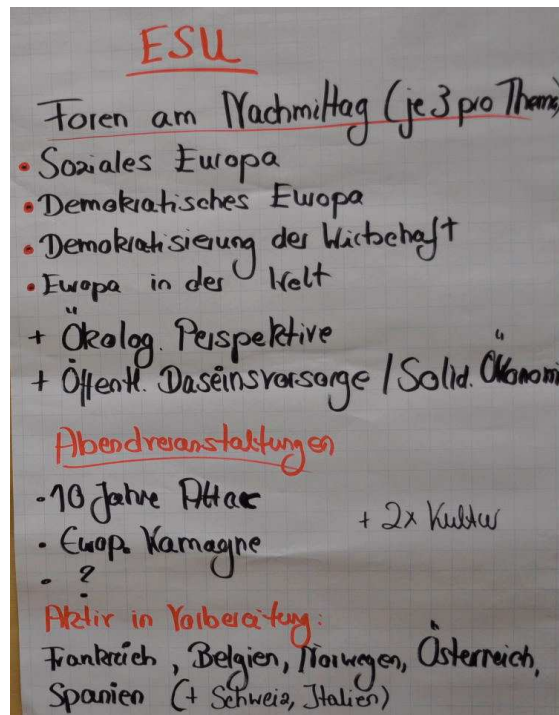 ESU
Foren am Nachmittag (je 3 pro Thema)
• Soziales Europa
• Demokratisches Europa
• Demokratisierung der Wirtschaft
• Europa in der Welt
+ Ökolog. Perspektive
+ Öffentl. Daseinsvorsorge / Solid. Ökonomi
Abendveranstaltungen
- 10 Jahre Attac
+ 2x Kultur
- Europ. Kamagne
- ?
Aktiv in Vorbereitung:
Frankreich, Belgien, Norwegen, Österreich,
Spanien (+ Schweiz, Italien)